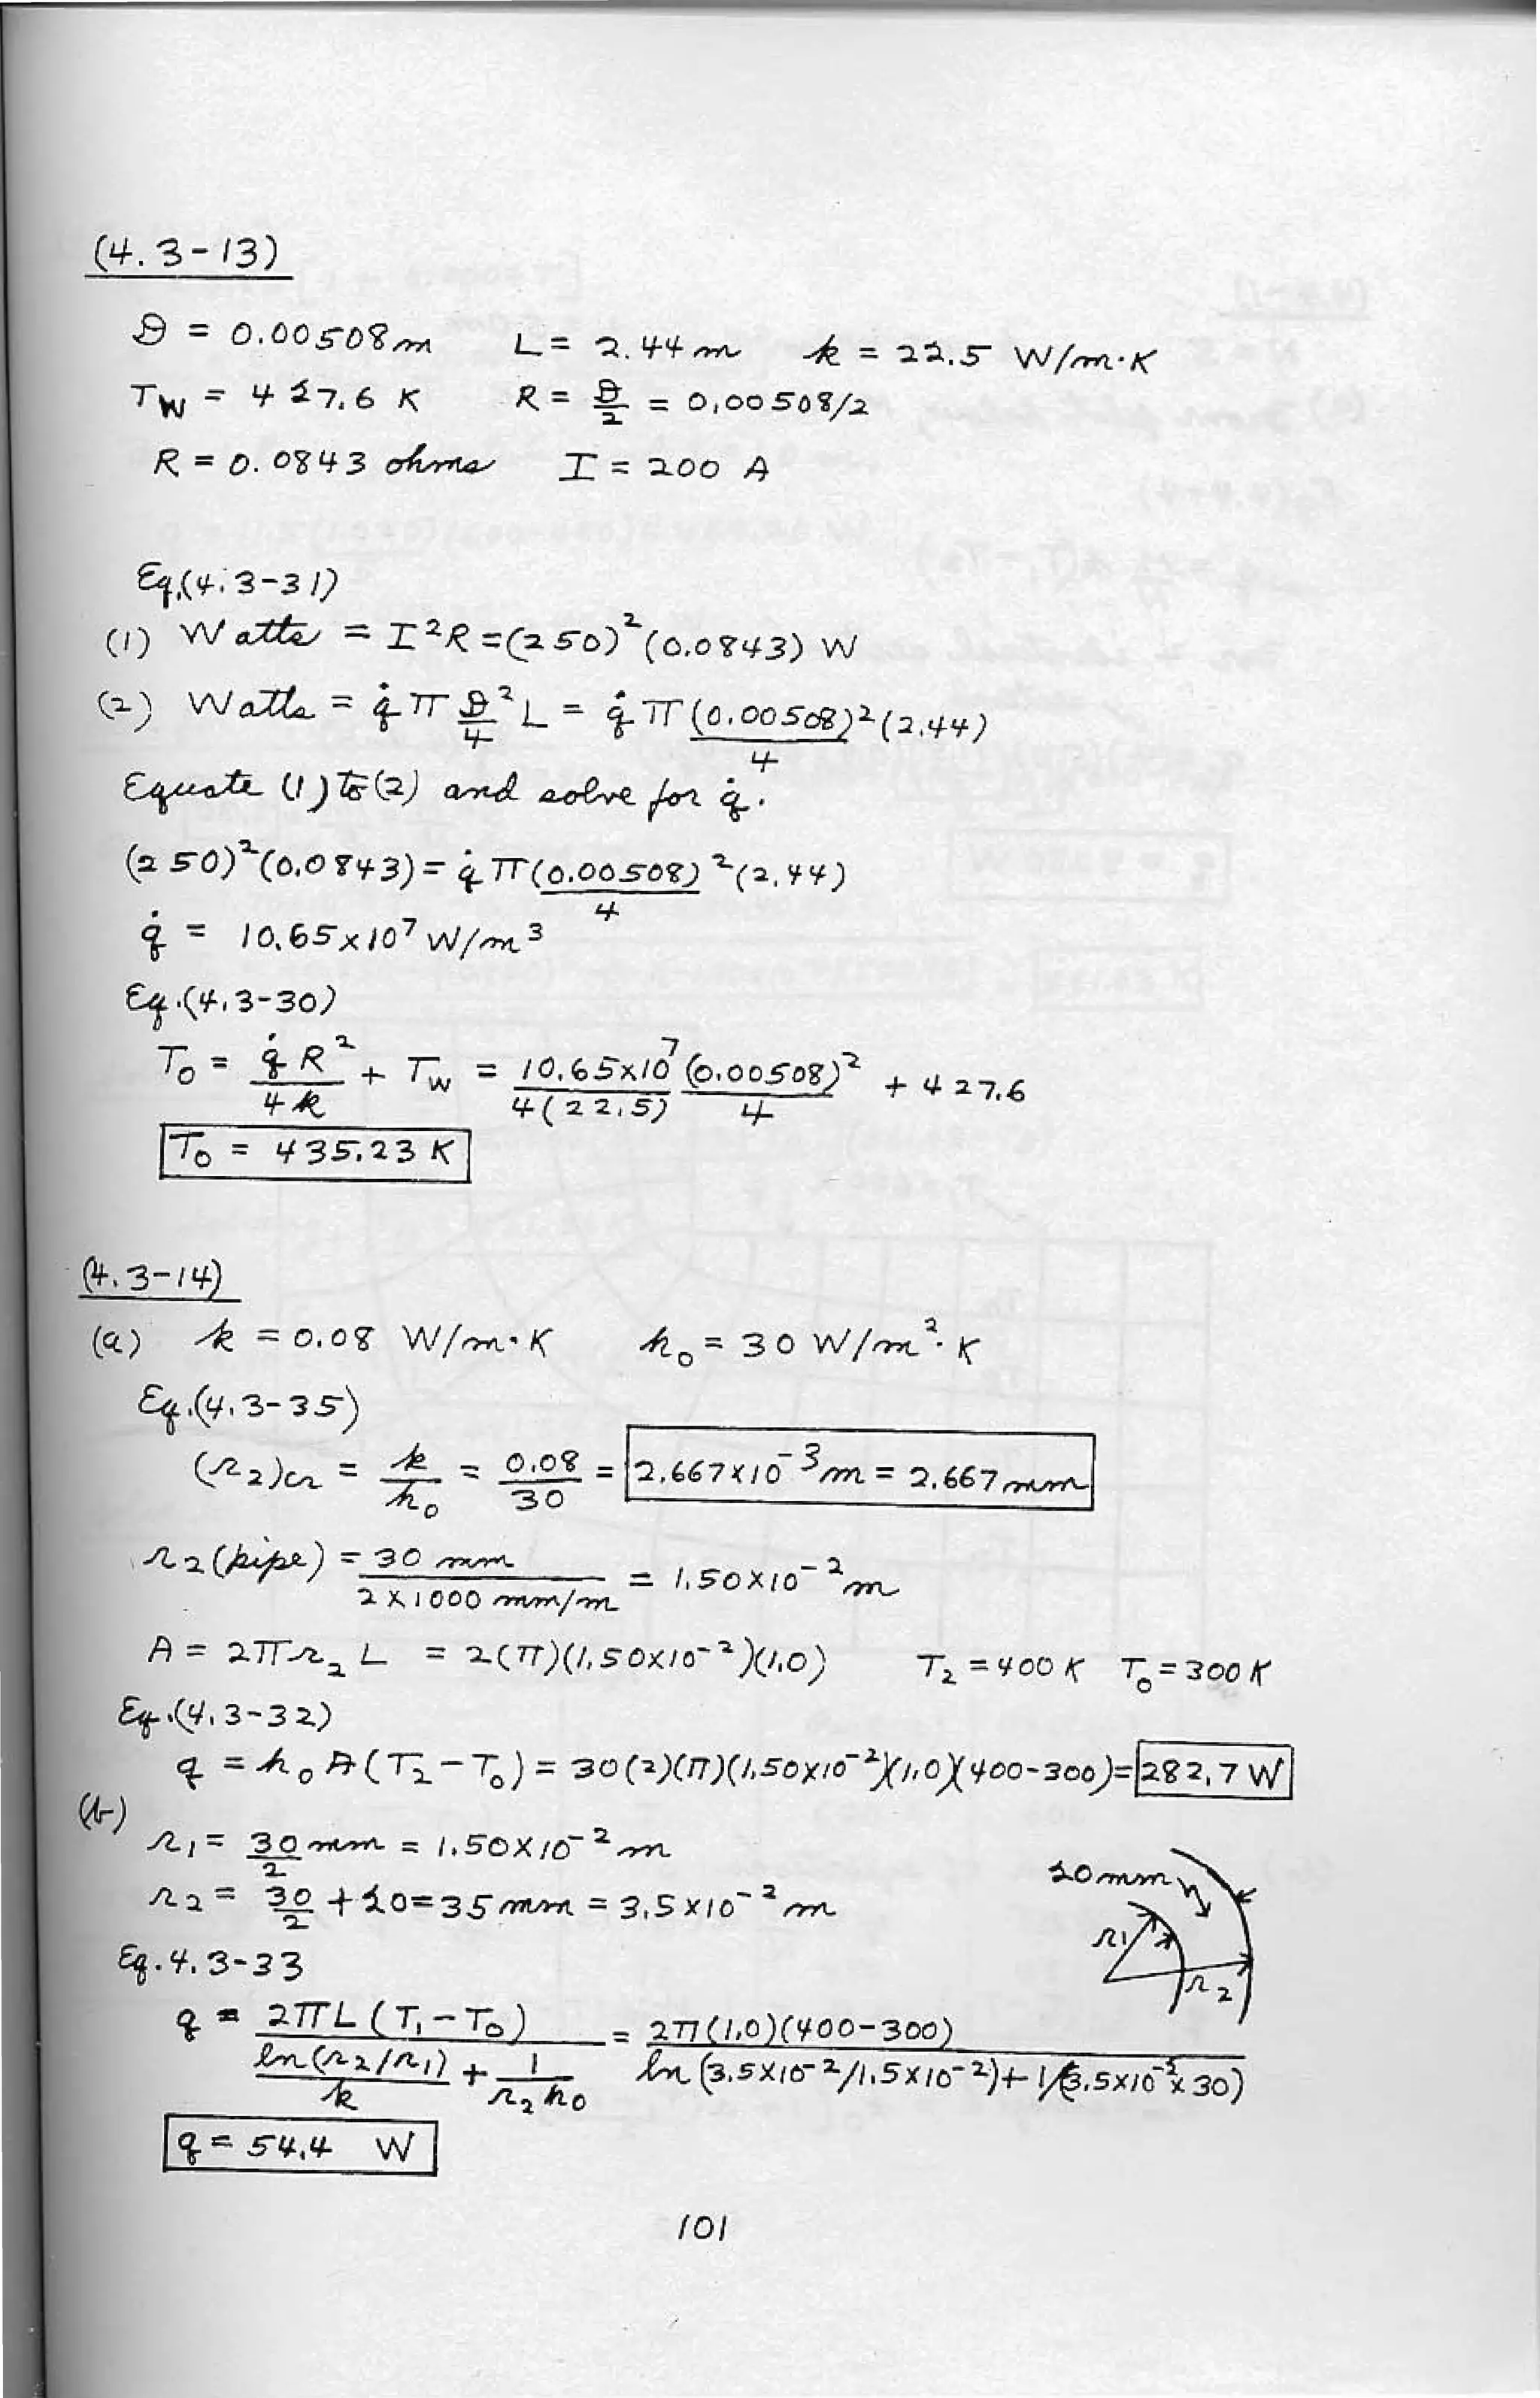 (4.3-13)
D = 0.00508 m   L = 2.44 m   k = 22.5 W/m·K
T_W = 427.6 K   R = D/2 = 0.00508/2
R = 0.0843 ohms   I = 200 A
Eq.(4.3-31)
(1) Watts = I²R = (250)²(0.0843) W
(2) Watts = q̇ π D²/4 L = q̇ π (0.00508)²/4 (2.44)
Equate (1) to (2) and solve for q̇.
(250)²(0.0843) = q̇ π (0.00508)²/4 (2.44)
q̇ = 10.65×10⁷ W/m³
Eq.(4.3-30)
T₀ = q̇R²/4k + T_W = 10.65×10⁷/4(22.5) (0.00508)²/4 + 427.6
T₀ = 435.23 K
(4.3-14)
(a) k = 0.08 W/m·K   h₀ = 30 W/m²·K
Eq.(4.3-35)
(r₂)cr = k/h₀ = 0.08/30 = 2.667×10⁻³ m = 2.667 mm
r₂(pipe) = 30 mm/2×1000 mm/m = 1.50×10⁻² m
A = 2πr₂L = 2(π)(1.50×10⁻²)(1.0)   T₂ = 400 K   T₀ = 300 K
Eq.(4.3-32)
q = h₀A(T₂-T₀) = 30(2)(π)(1.50×10⁻²)(1.0)(400-300) = 282.7 W
(b)
r₁ = 30/2 mm = 1.50×10⁻² m
r₂ = 30/2 + 20 = 35 mm = 3.5×10⁻² m
20 mm
r₁
r₂
Eq. 4.3-33
q = 2πL(T₁-T₀)/ln(r₂/r₁)/k + 1/r₂h₀ = 2π(1.0)(400-300)/ln(3.5×10⁻²/1.5×10⁻²)+1/(3.5×10⁻²×30)
q = 54.4 W
101